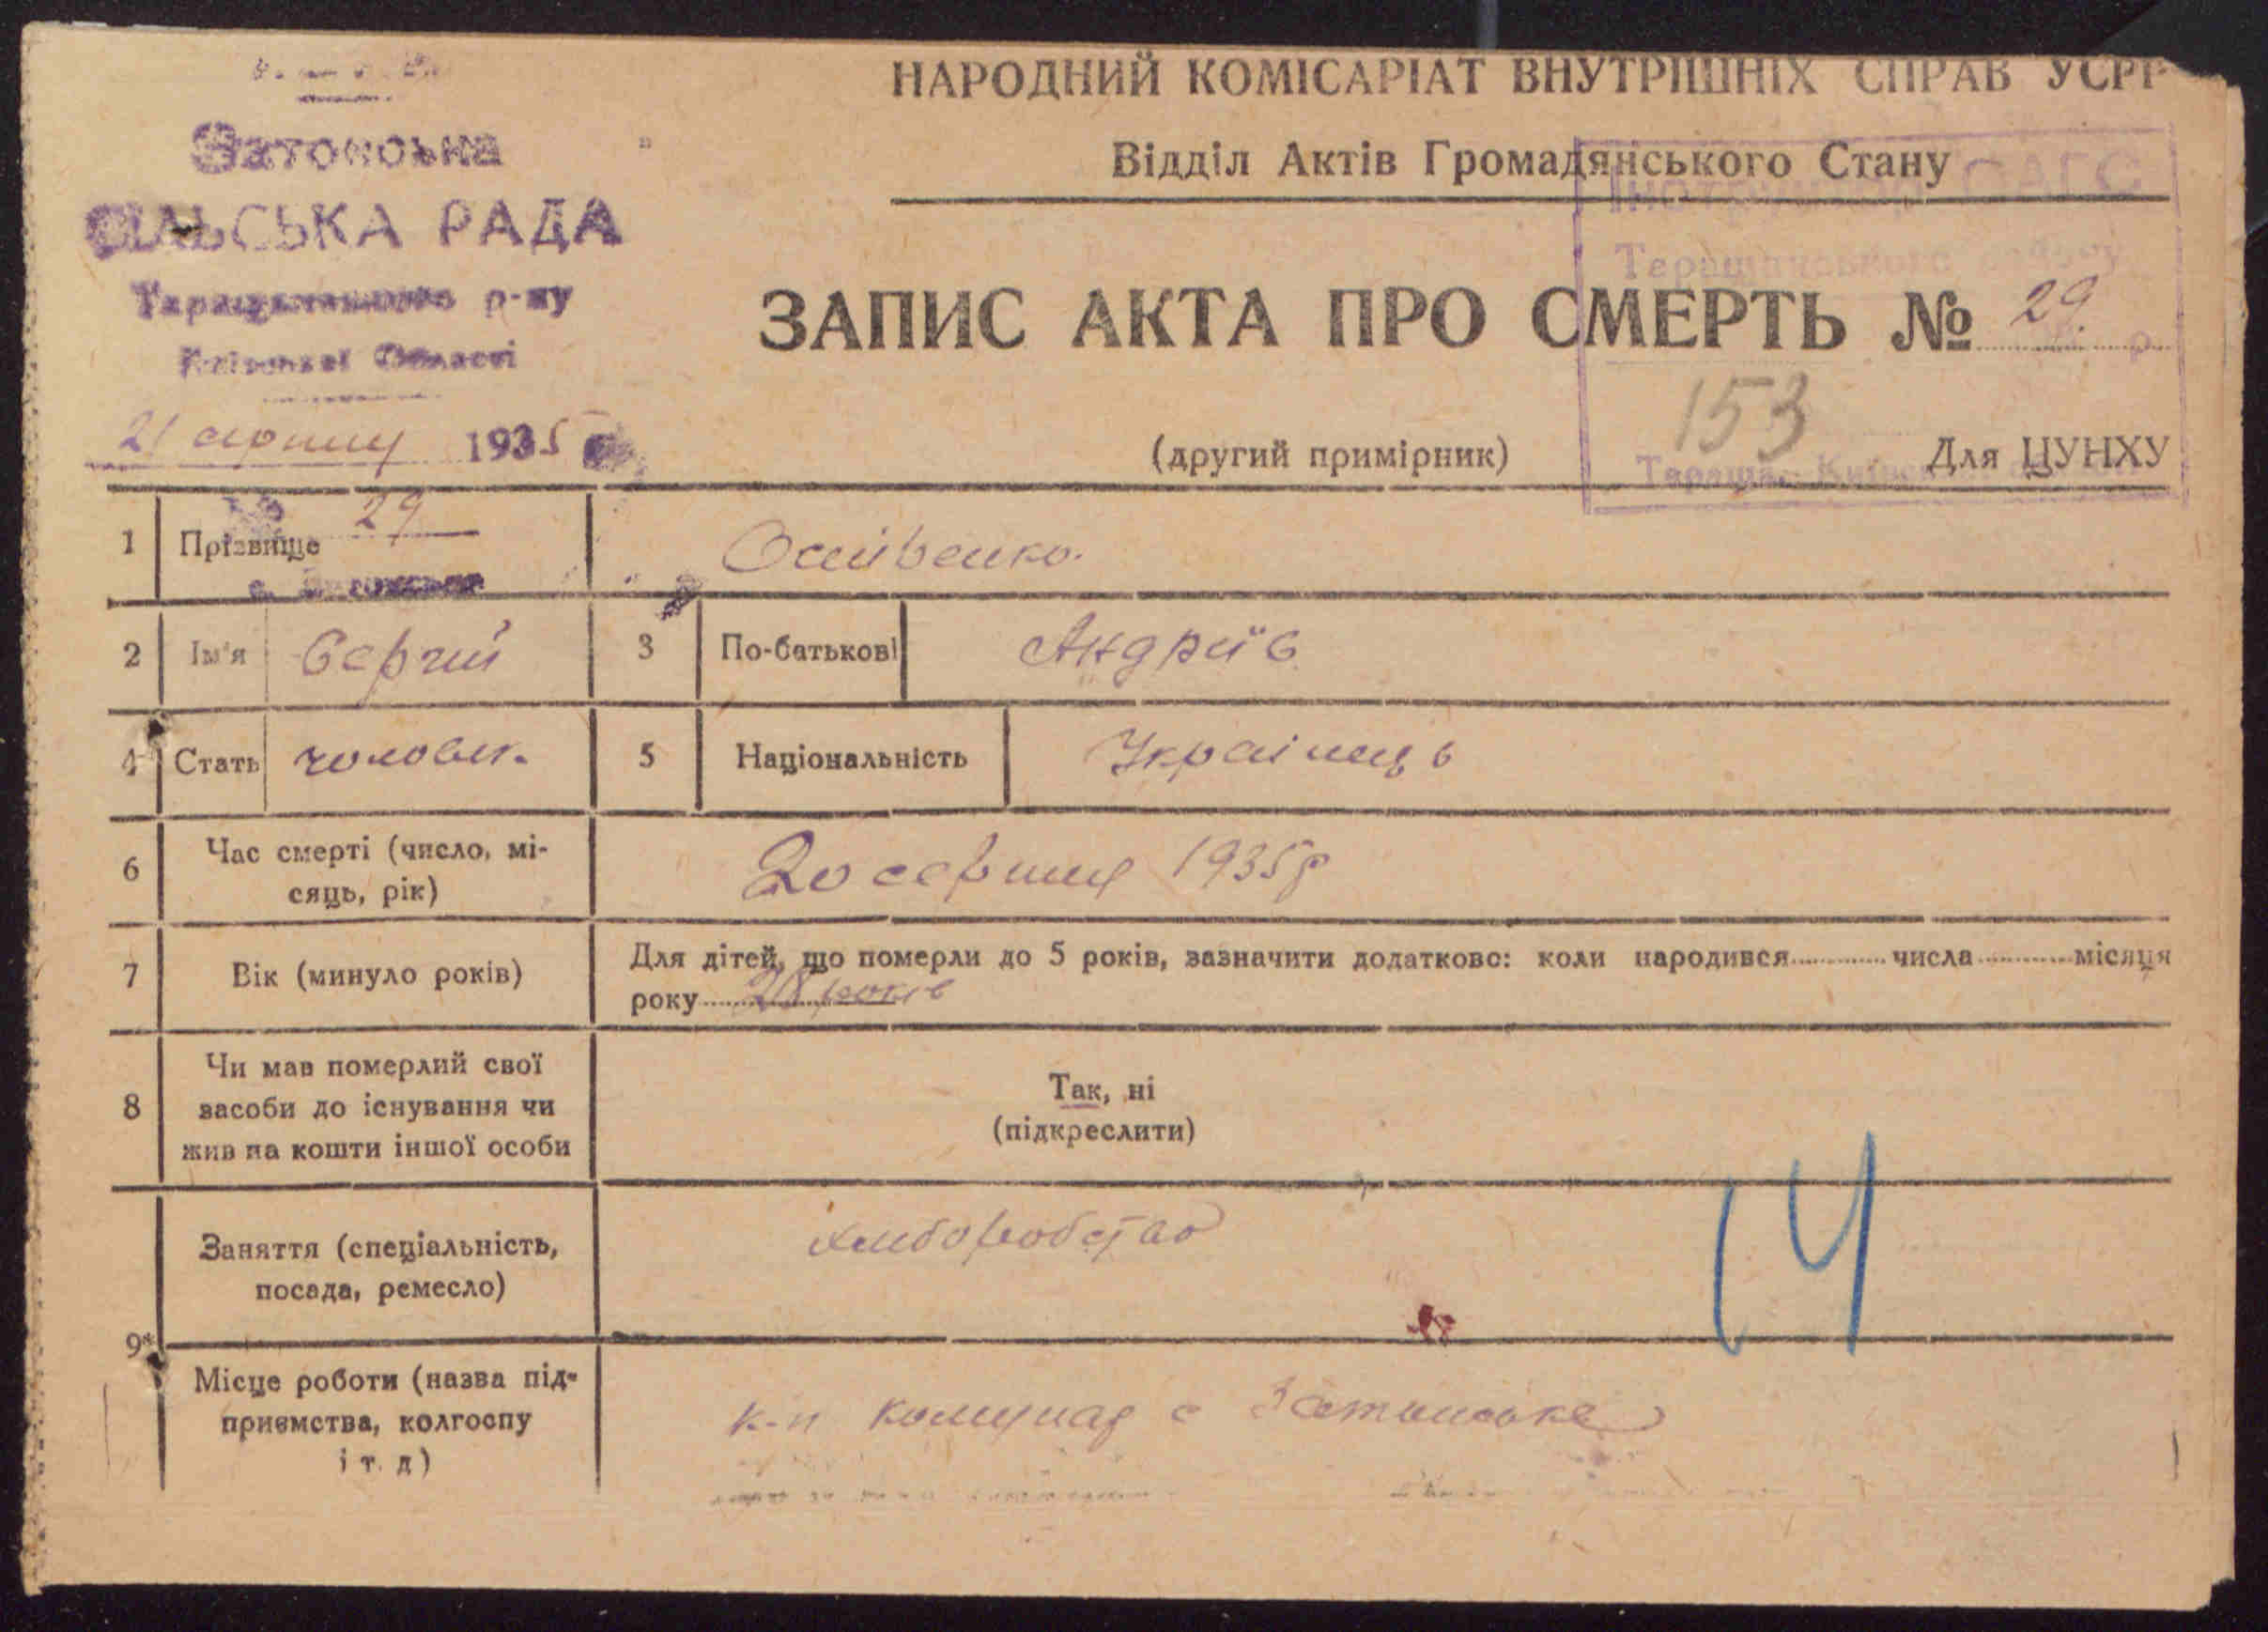 НАРОДНИЙ КОМІСАРІАТ ВНУТРІШНІХ СПРАВ УСРР
Відділ Актів Громадянського Стану
СІЛЬСЬКА РАДА
Таращанського р-ну
Київської Області
21 серпня 1935
№ 29
ЗАПИС АКТА ПРО СМЕРТЬ № 29
153
(другий примірник)
Для ЦУНХУ
1 Прізвище
2 Ім'я Сергий 3 По-батькові Андріїв
4 Стать чоловік. 5 Національність Українець
6 Час смерті (число, мі-
сяць, рік)
20 серпня 1935р
7 Вік (минуло років)
Для дітей, що померли до 5 років, зазначити додатково: коли народився числа місяця
року 28 років
8 Чи мав померлий свої
засоби до існування чи
жив на кошти іншої особи
Так, ні
(підкреслити)
9* Заняття (спеціальність,
посада, ремесло)
хлиборобство
14
Місце роботи (назва під-
приємства, колгоспу
і т. д)